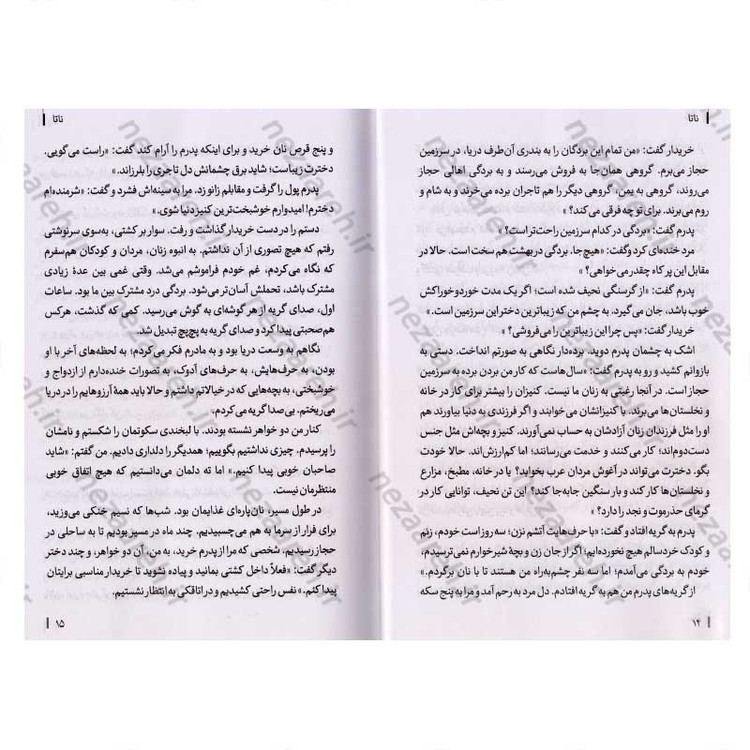 ناتا
خریدار گفت: «من تمام این بردگان را به بندری آن‌طرف دریا، در سرزمین
حجاز می‌برم. گروهی همان‌جا به فروش می‌رسند و به بردگی اهالی حجاز
می‌روند، گروهی به یمن، گروهی دیگر را هم تاجران برده می‌خرند و به شام و
روم می‌برند. برای تو چه فرقی می‌کند؟ »
پدرم گفت: «بردگی در کدام سرزمین راحت‌تر است؟ »
مرد خنده‌ای کرد و گفت: «هیچ‌جا. بردگی در بهشت هم سخت است. حالا در
مقابل این پر کاه چقدر می‌خواهی؟ »
پدرم گفت: «از گرسنگی نحیف شده است؛ اگر یک مدت خورد و خوراکش
خوب باشد، جان می‌گیرد. به چشم من که زیباترین دختر این سرزمین است. »
خریدار گفت: «پس چرا این زیباترین را می‌فروشی؟ »
اشک به چشمان پدرم دوید. برده‌دار نگاهی به صورتم انداخت. دستی به
بازوانم کشید و رو به پدرم گفت: «سال‌هاست که کار من بردن برده به سرزمین
حجاز است. در آنجا رغبتی به زنان ما نیست. کنیزان را بیشتر برای کار در خانه و
نخلستان‌ها می‌برند. با کنیزانشان می‌خوابند و اگر فرزندی به دنیا بیاورند هم
او را مثل فرزندان زنان آزادشان به حساب نمی‌آورند. کنیز و بچه‌اش مثل جنس
دست‌دوم‌اند؛ کار می‌کنند و خدمت می‌رسانند؛ اما کم‌ارزش‌اند. حالا خودت
بگو. دخترت می‌تواند در آغوش مردان عرب بخوابد؟ یا در خانه، مطبخ، مزارع
و نخلستان‌ها کار کند و بار سنگین جابه‌جا کند؟ این تن نحیف، توانایی کار در
گرمای حضرموت و نجد را دارد؟ »
پدرم به گریه افتاد و گفت: «با حرف‌هایت آتشم نزن؛ سه روز است خودم، زنم
و کودک خردسالم هیچ نخورده‌ایم؛ اگر از جان زن و بچهٔ شیرخوارم نمی‌ترسیدم،
خودم به بردگی می‌آمدم؛ اما سه نفر چشم‌به‌راه من هستند تا با نان برگردم. »
از گریه‌های پدرم من هم به گریه افتادم. دل مرد به رحم آمد و مرا به پنج سکه
۱۴
ناتا
و پنج قرص نان خرید و برای اینکه پدرم را آرام کند گفت: «راست می‌گویی.
دخترت زیباست؛ شاید برق چشمانش دل تاجری را بلرزاند. »
پدرم پول را گرفت و مقابلم زانو زد. مرا به سینه‌اش فشرد و گفت: «شرمنده‌ام
دخترم! امیدوارم خوشبخت‌ترین کنیز دنیا شوی. »
دستم را در دست خریدار گذاشت و رفت. سوار بر کشتی، به‌سوی سرنوشتی
رفتم که هیچ تصوری از آن نداشتم. به انبوه زنان، مردان و کودکان هم‌سفرم
که نگاه می‌کردم، غم خودم فراموشم می‌شد. وقتی غمی بین عدهٔ زیادی
مشترک باشد، تحملش آسان‌تر می‌شود. بردگی درد مشترک بین ما بود. ساعات
اول، صدای گریه از هر گوشه‌ای به گوش می‌رسید. کمی که گذشت، هرکس
هم‌صحبتی پیدا کرد و صدای گریه به پچ‌پچ تبدیل شد.
نگاهم به وسعت دریا بود و به مادرم فکر می‌کردم؛ به لحظه‌های آخر با او
بودن، به حرف‌هایش، به حرف‌های آدوک، به تصورات خنده‌دارم از ازدواج و
خوشبختی، به بچه‌هایی که در خیالاتم داشتم و حالا باید همهٔ آرزوهایم را در دریا
می‌ریختم. بی‌صدا گریه می‌کردم.
کنار من دو خواهر نشسته بودند. با لبخندی سکوتمان را شکستم و نامشان
را پرسیدم. چیزی نداشتیم بگوییم؛ همدیگر را دلداری دادیم. من گفتم: «شاید
صاحبان خوبی پیدا کنیم.» اما ته دلمان می‌دانستیم که هیچ اتفاق خوبی
منتظرمان نیست.
در طول مسیر، نان‌پاره‌ای غذایمان بود. شب‌ها که نسیم خنکی می‌وزید،
برای فرار از سرما به هم می‌چسبیدیم. چند ماه در مسیر بودیم تا به ساحلی در
حجاز رسیدیم. شخصی که مرا از پدرم خرید، به من، آن دو خواهر، و چند دختر
دیگر گفت: «فعلاً داخل کشتی بمانید و پیاده نشوید تا خریدار مناسبی برایتان
پیدا کنم.» نفس راحتی کشیدیم و در اتاقکی به انتظار نشستیم.
۱۵
nezaareh.ir